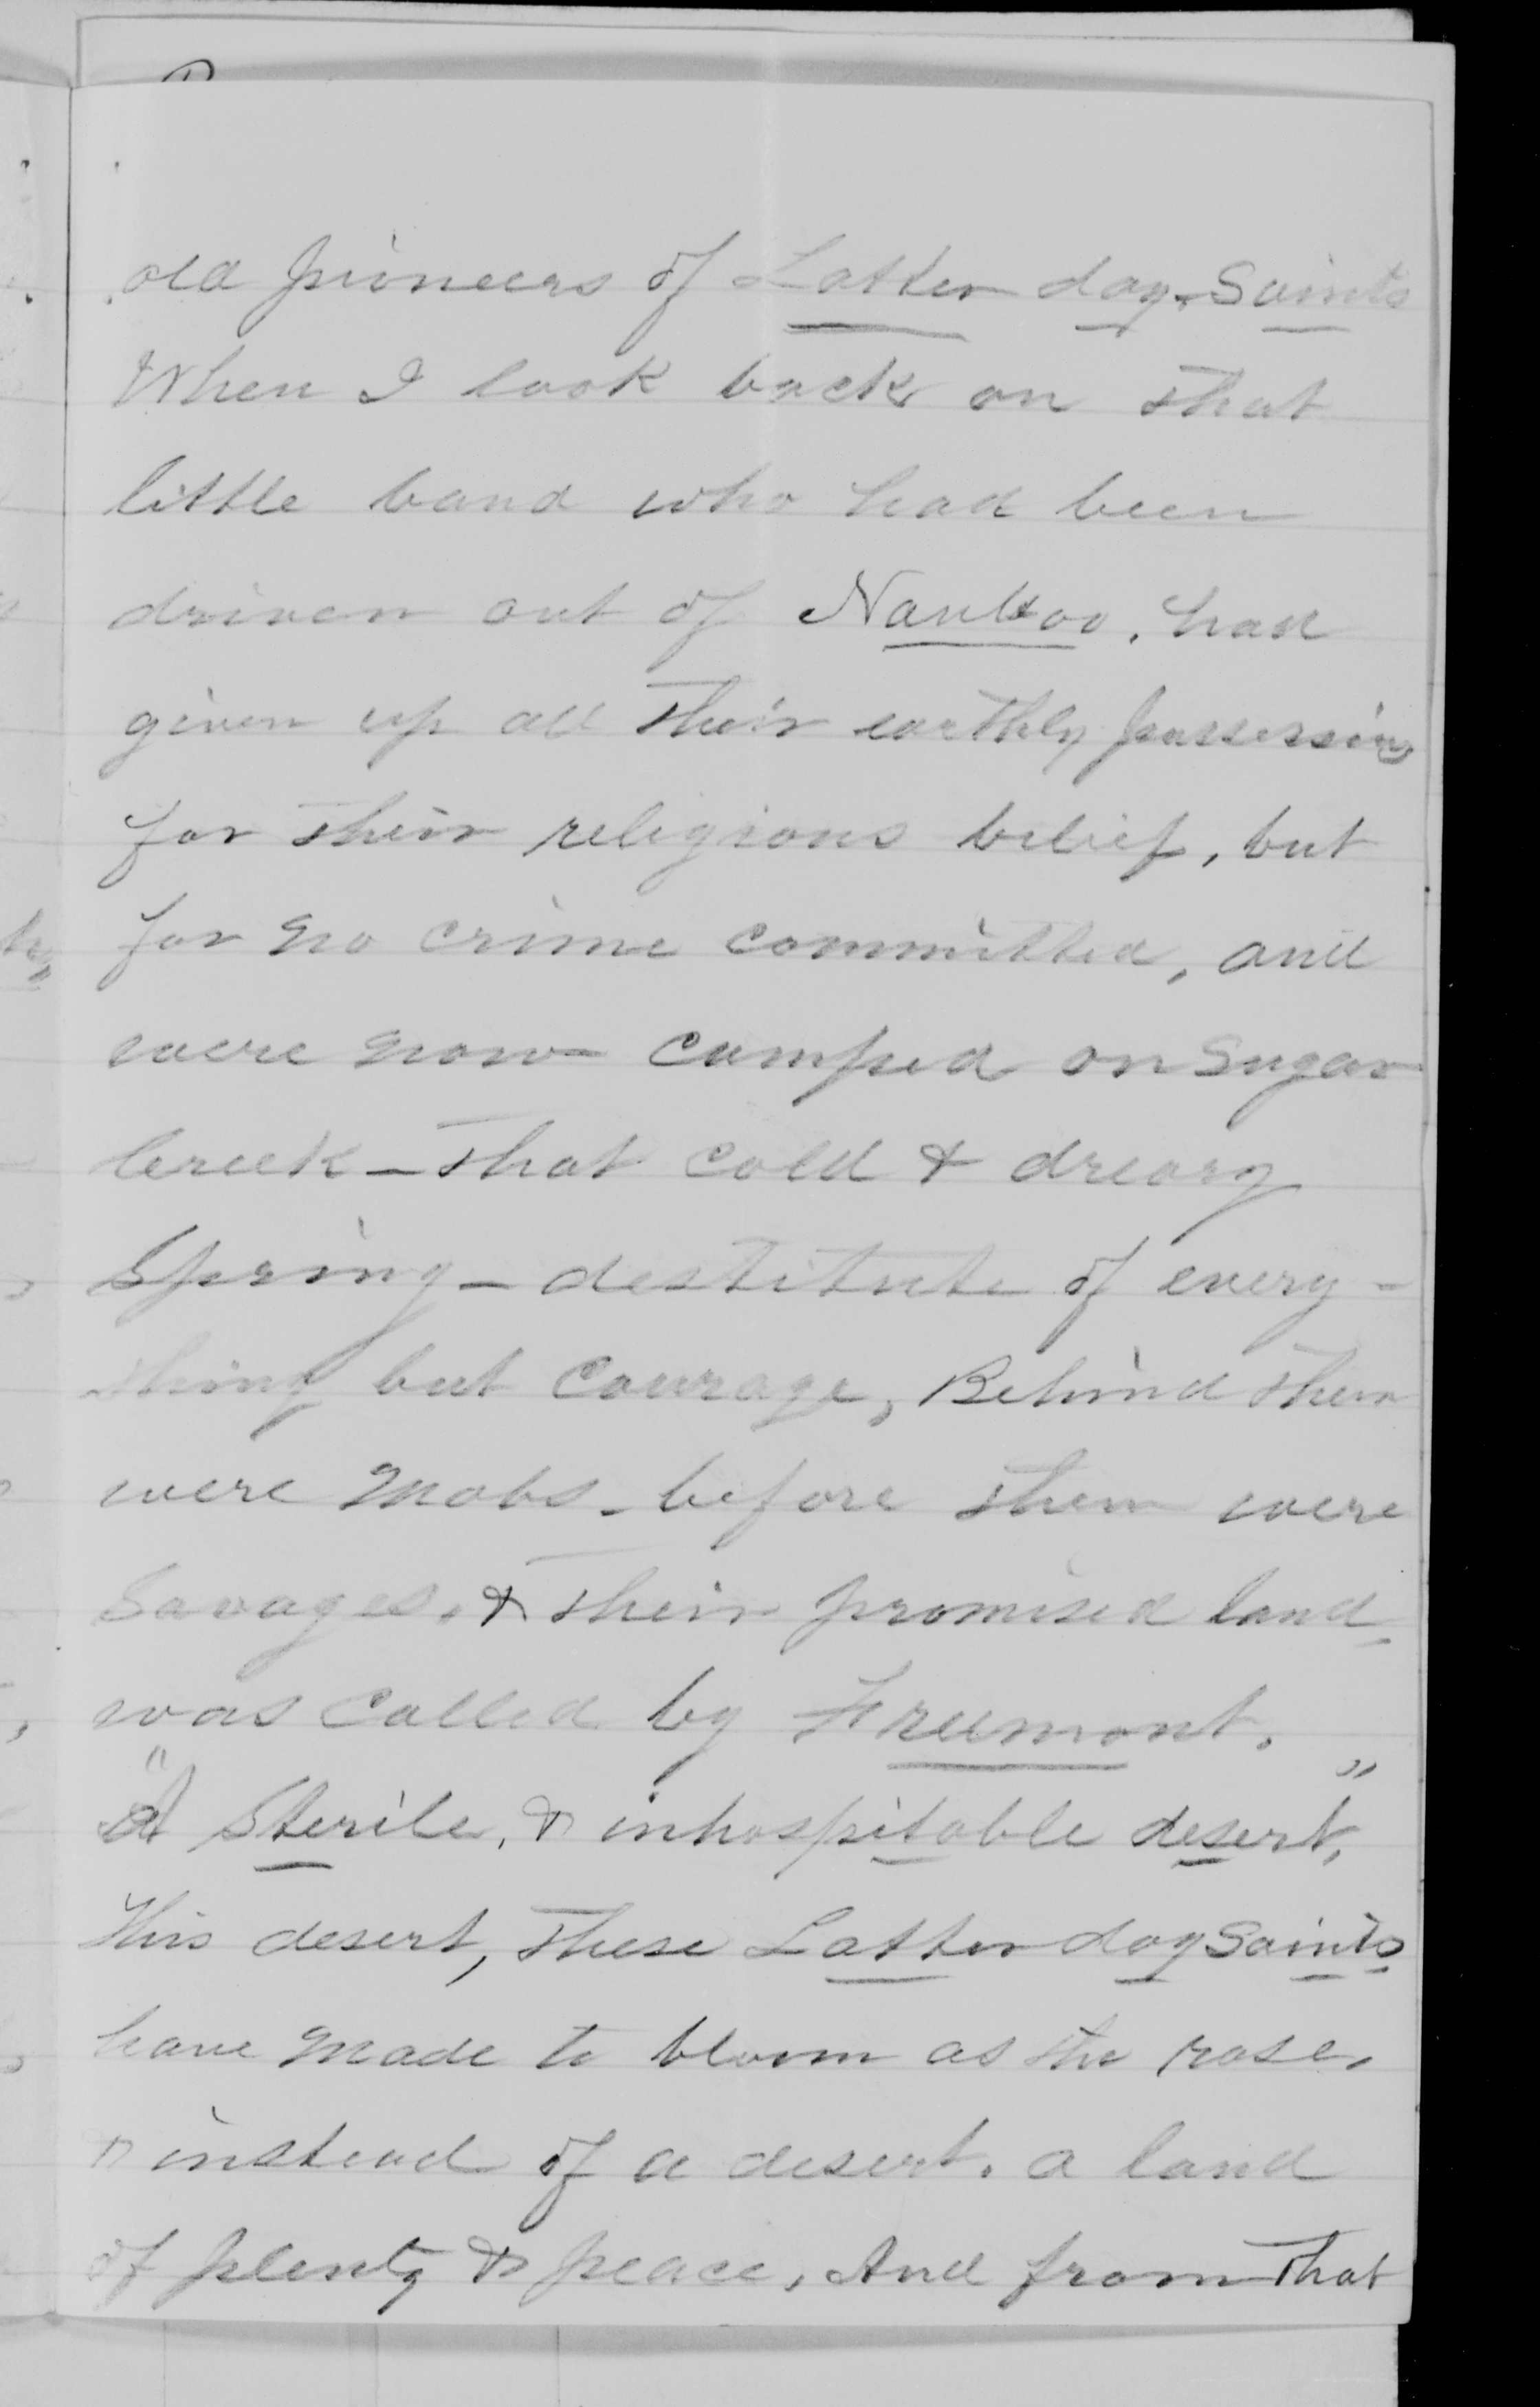 old pioneers of Latter day Saints
When I look back on that
little band who had been
driven out of Nauvoo, had
given up all their earthly possessions
for their religious belief, but
for no crime committed, and
were now camped on Sugar
Creek – that cold & dreary
Spring – destitute of every-
thing but Courage, Behind them
were Mobs – before them were
Savages, & their promised land,
was called by Freemont,
"A Sterile, & inhospitable desert,"
This desert, these Latter day Saints
have made to bloom as the rose,
& instead of a desert, a land
of plenty & peace, And from that